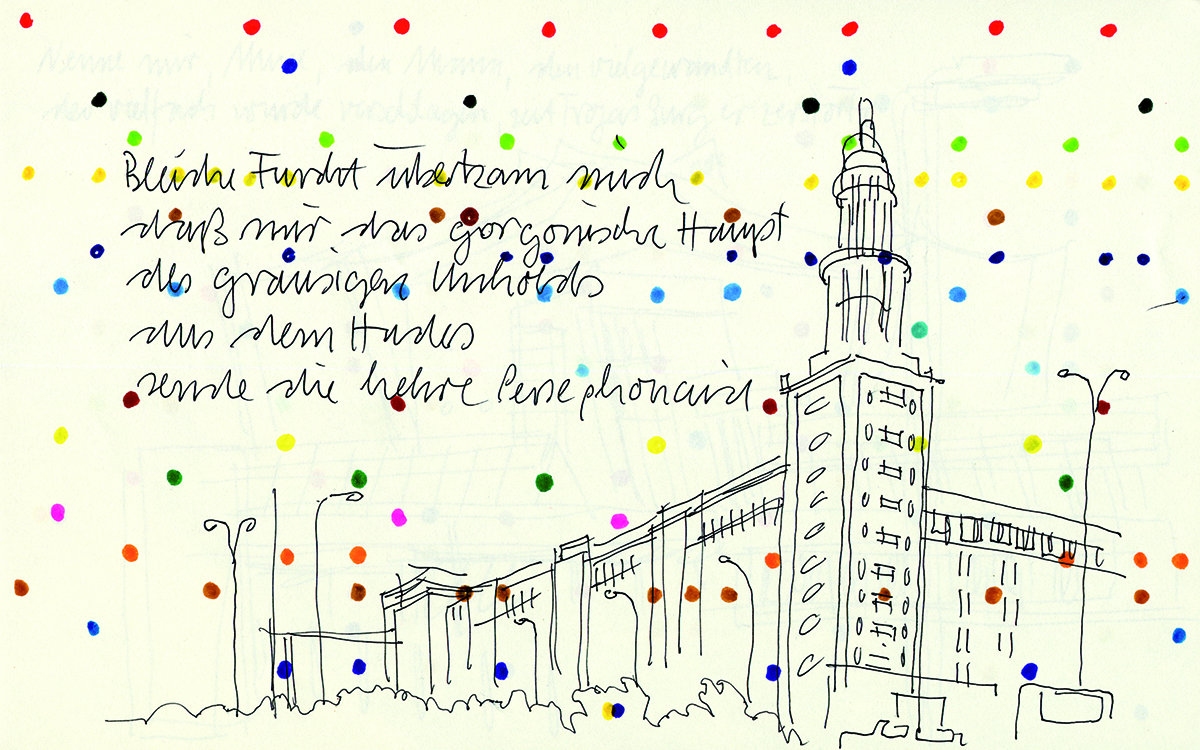 Nenne mir, Muse, den Mann, den vielgewandten,
der vielfach wurde verschlagen, seit Trojas Burg er zerstört
Bleiche Furcht überkam mich
daß mir das gorgonische Haupt
des grausigen Unholds
aus dem Hades
sende die hehre Persephoneia